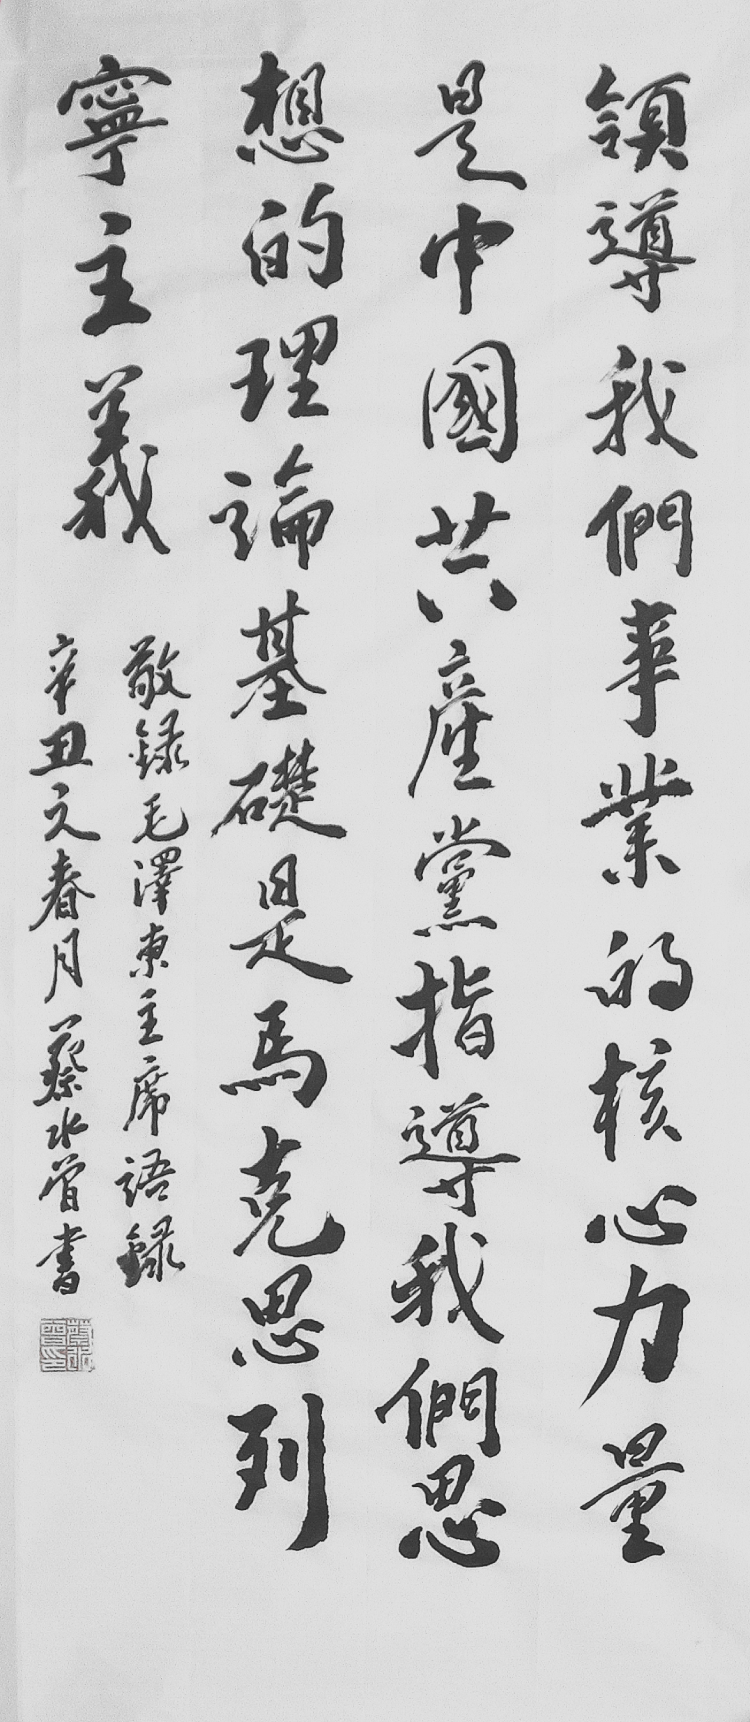 領導我們事業的核心力量
是中國共產黨指導我們思
想的理論基礎是馬克思列
寧主義
敬録毛澤東主席語録
辛丑之春月蔡水曾書